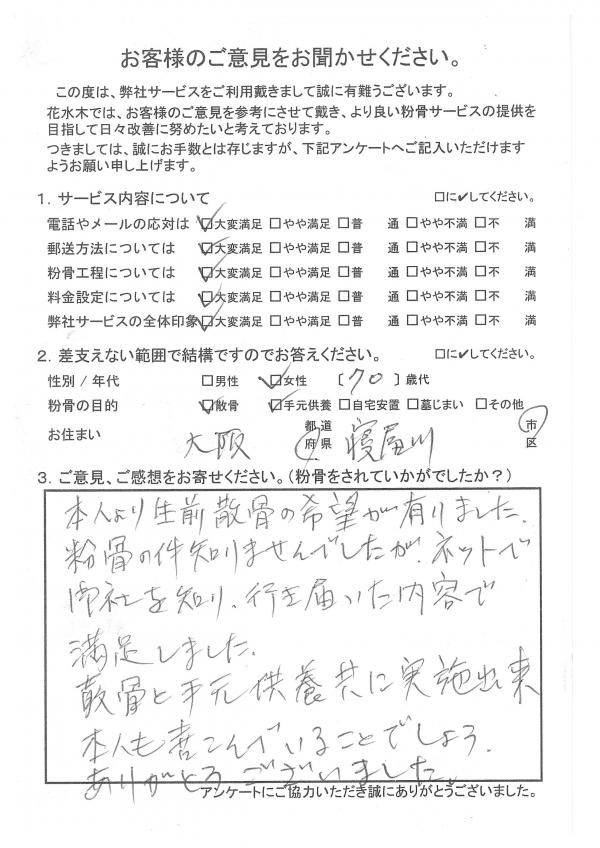 お客様のご意見をお聞かせください。
この度は、弊社サービスをご利用戴きまして誠に有難うございます。
花水木では、お客様のご意見を参考にさせて戴き、より良い粉骨サービスの提供を
目指して日々改善に努めたいと考えております。
つきましては、誠にお手数とは存じますが、下記アンケートへご記入いただけます
ようお願い申し上げます。
1. サービス内容について □に✔してください。
電話やメールの応対は ☑大変満足 □やや満足 □普 通 □やや不満 □不 満
郵送方法については ☑大変満足 □やや満足 □普 通 □やや不満 □不 満
粉骨工程については ☑大変満足 □やや満足 □普 通 □やや不満 □不 満
料金設定については ☑大変満足 □やや満足 □普 通 □やや不満 □不 満
弊社サービスの全体印象 ☑大変満足 □やや満足 □普 通 □やや不満 □不 満
2. 差支えない範囲で結構ですのでお答えください。 □に✔してください。
性別 / 年代 □男性 ☑女性 〔 70 〕歳代
粉骨の目的 ☑散骨 ☑手元供養 □自宅安置 □墓じまい □その他
お住まい 大阪 都 道 府 県 寝屋川 市 区
3. ご意見、ご感想をお寄せください。(粉骨をされていかがでしたか?)
本人より生前散骨の希望が有りました。
粉骨の件知りませんでしたが、ネットで
御社を知り、行き届いた内容で
満足しました。
散骨と手元供養共に実施出来
本人も喜こんでいることでしょう。
ありがとうございました。
アンケートにご協力いただき誠にありがとうございました。